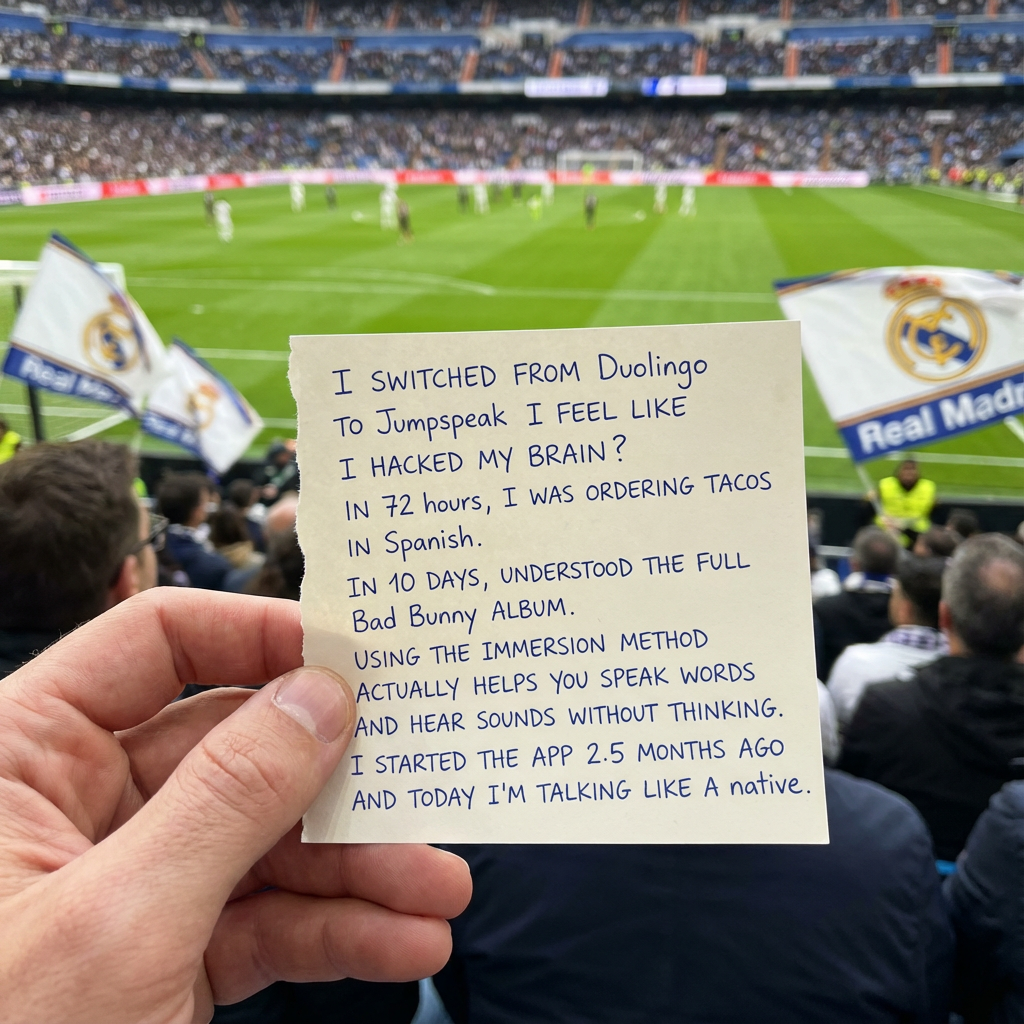 I SWITCHED FROM Duolingo
TO Jumpspeak I FEEL LIKE
I HACKED MY BRAIN?
IN 72 hours, I WAS ORDERING TACOS
IN Spanish.
IN 10 DAYS, UNDERSTOOD THE FULL
Bad Bunny ALBUM.
USING THE IMMERSION METHOD
ACTUALLY HELPS YOU SPEAK WORDS
AND HEAR SOUNDS WITHOUT THINKING.
I STARTED THE APP 2.5 MONTHS AGO
AND TODAY I'M TALKING LIKE A native.
Real Ma
Real Madr